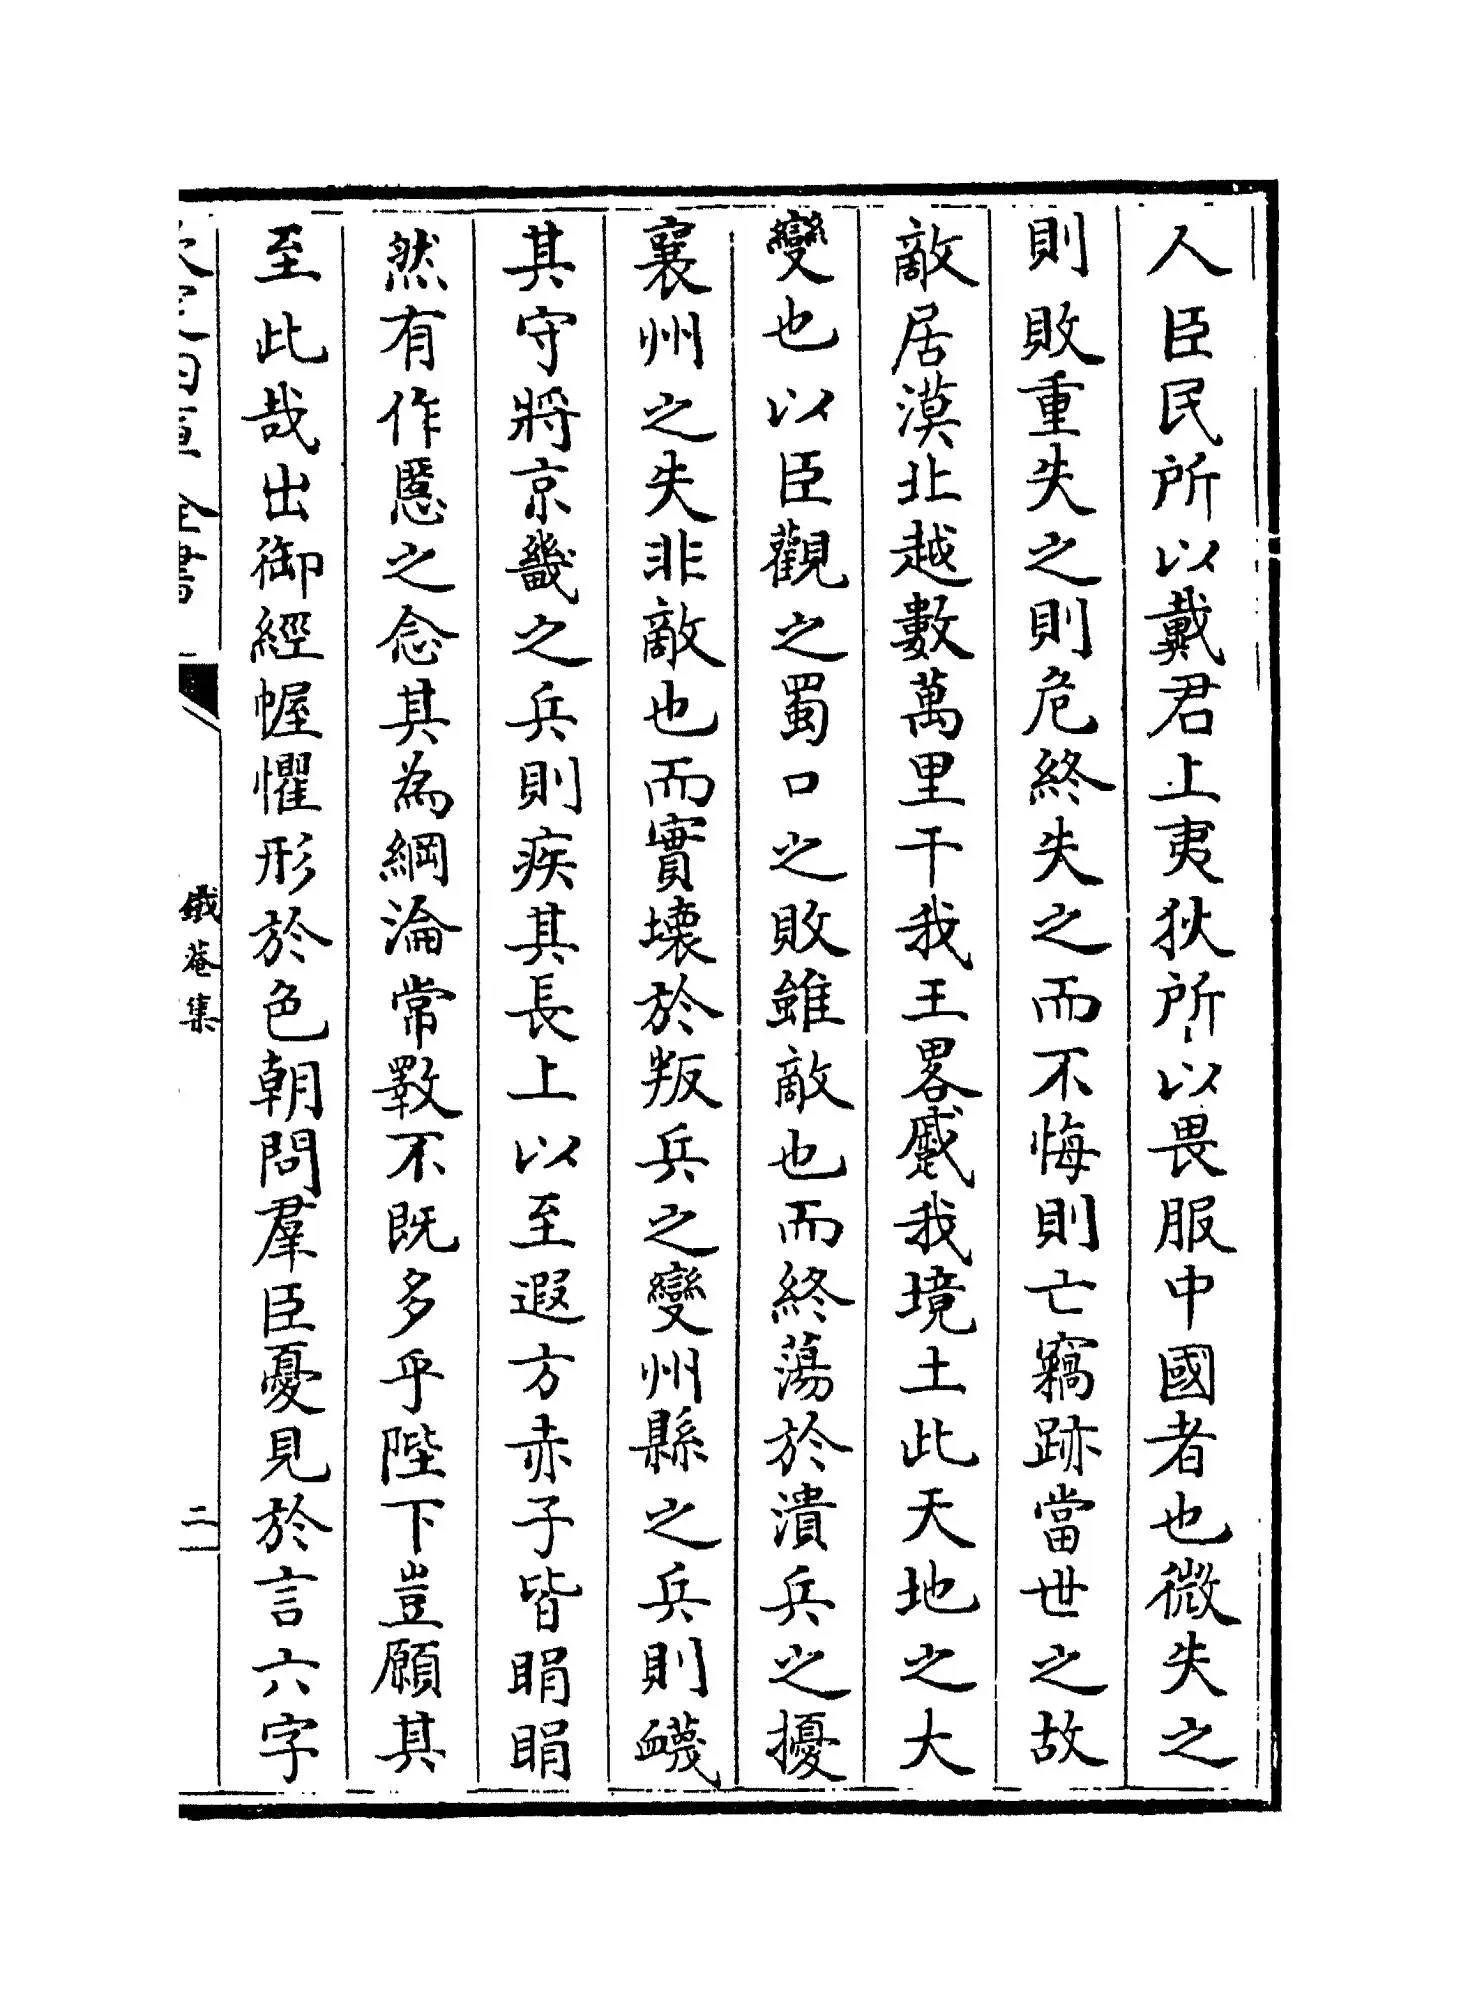 人臣民所以戴君上夷狄所以畏服中國者也微失之
則敗重失之則危終失之而不悔則亡竊跡當世之故
敵居漠北越數萬里干我王畧蹙我境土此天地之大
變也以臣觀之蜀口之敗雖敵也而終蕩於潰兵之擾
襄州之失非敵也而實壞於叛兵之變州縣之兵則衊
其守將京畿之兵則疾其長上以至遐方赤子皆睊睊
然有作慝之念其為綱淪常斁不既多乎陛下豈願其
至此哉出御經幄懼形於色朝問羣臣憂見於言六字
欽定四庫全書
鐵菴集
二